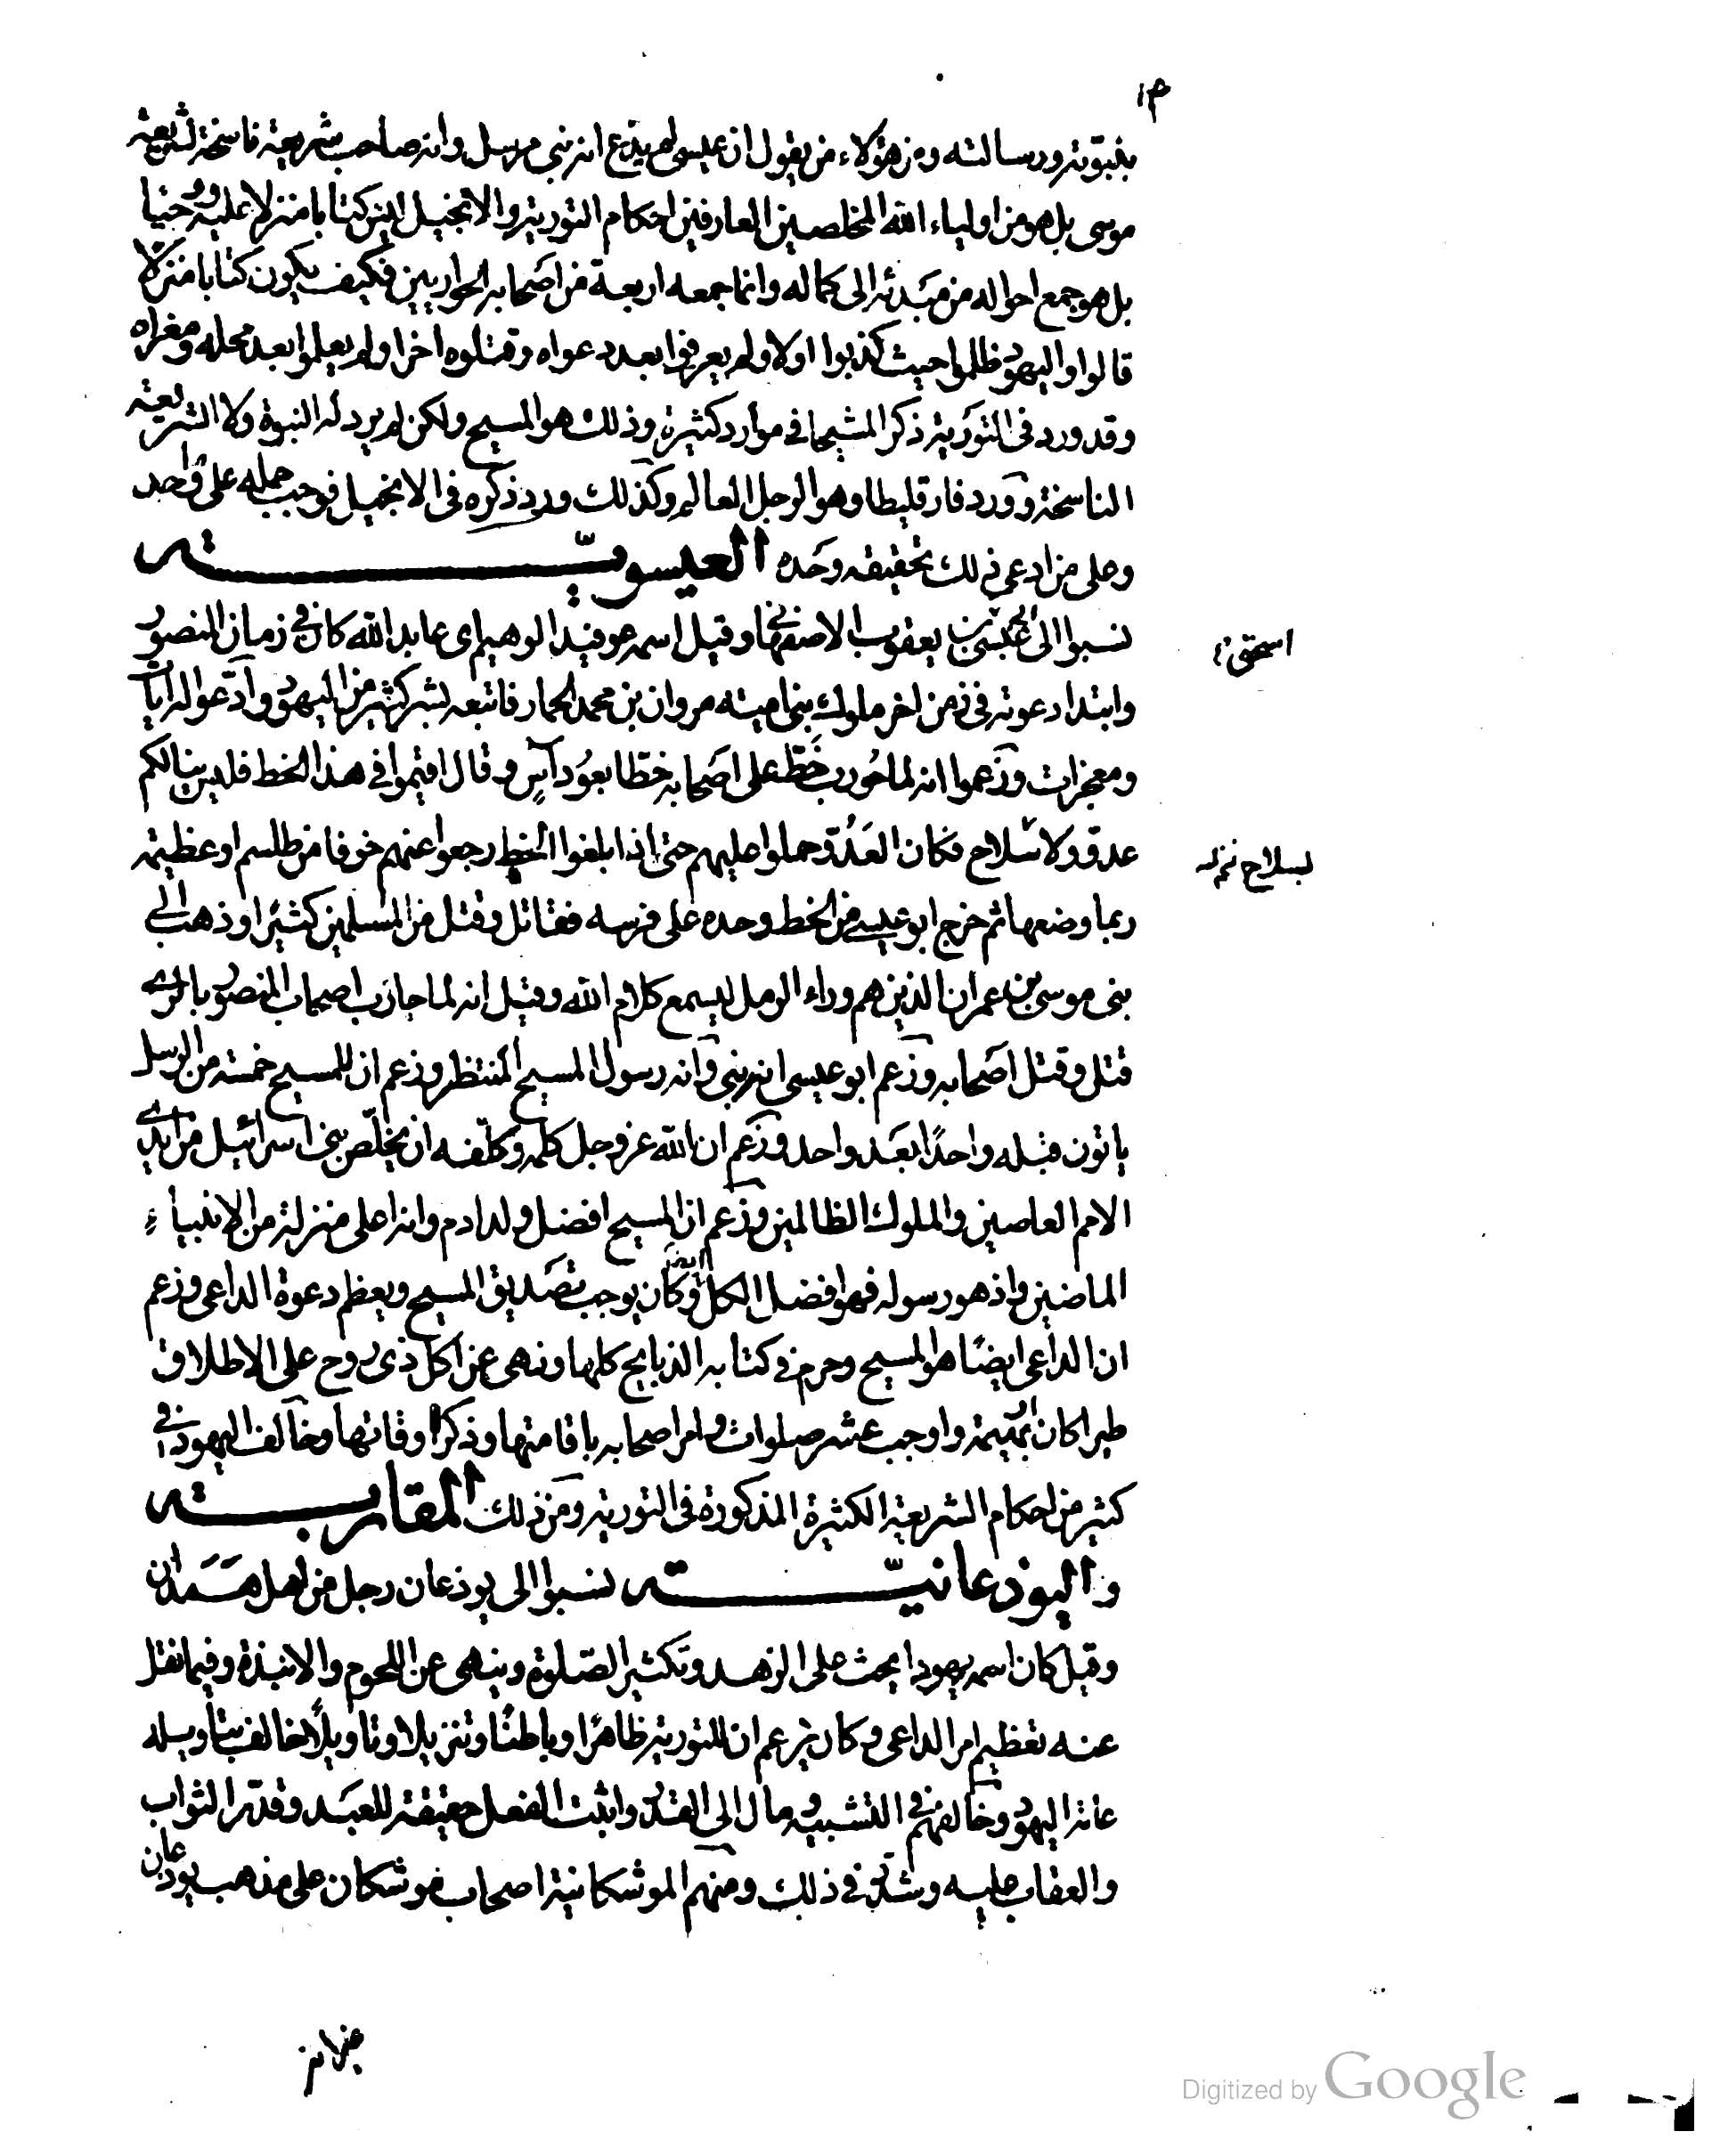 بنبوته ورسالته ومن هؤلاء من يقول ان عيسى لم يدع انه نبى مرسل وانه صاحب شريعة ناسخة لشريعة
موسى بل هو من اولياء الله المخلصين العارفين احكام التورية والانجيل ليس كتابا منزلا عليه ووحيا
بل هو جمع احواله من مبدئه الى كماله وانما جمعه اربعة من اصحابه الحواريين فكيف يكون كتابا منزلا
قالوا واليهود ظلموا حيث كذبوا اولا ولم يعرفوا بعد دعواه وقتلوه اخرا ولم يعلموا بعد محله ومغزاه
وقد ورد فى التورية ذكر المشيحا فى موارد كثيرة وذلك هو المسيح ولكن لم يرد له النبوة ولا الشريعة
الناسخة وورد فارقليطا وهو الرجل العالم وكذلك ورد ذكره فى الانجيل فوجب حمله على واحد
وعلى من ادعى ذلك تحقيقه وحده العيسويّة
نسبوا الى ابى عيسى بن يعقوب الاصفهانى وقيل اسمه عوفيد الوهيم اى عابد الله كان فى زمان المنصور
اسحق
وابتدا دعوته فى زمن اخر ملوك بنى امية مروان بن محمد الحمار فاتبعه بشر كثير من اليهود وادعوا له ايات
ومعجزات وزعموا انه لما حورب خط على اصحابه خطا بعود آس وقال اقيموا فى هذا الخط فليس ينالكم
عدو ولا سلاح فكان العدو حملوا عليهم حتى اذا بلغوا الخط رجعوا عنهم خوفا من طلسم او عظيمة
بسلاح نزله
ربما وضعها ثم خرج ابو عيسى من الخط وحده على فرسه فقاتل وقتل من المسلمين كثيرا وذهب الى
بنى موسى بن عمران الذين هم وراء الرمل ليسمع كلام الله وقيل انه لما حارب اصحاب المنصور بالرى
قتل وقتل اصحابه وزعم ابو عيسى انه نبى وانه رسول المسيح المنتظر وزعم ان للمسيح خمسة من الرسل
ياتون قبله واحدًا بعد واحد وزعم ان الله عز وجل كلمه وكلّفه ان يخلّص بنى اسرائيل من ايدى
الامم العاصين والملوك الظالمين وزعم ان المسيح افضل ولد ادم وانه اعلى منزلة من الانبياء
الماضين واذ هو رسوله فهو افضل الكل ايضا وكان يوجب تصديق المسيح ويعظم دعوة الداعى وزعم
ان الداعى ايضًا هو المسيح وحرم فى كتابه الذبايح كلها ونهى عن اكل ذى روح على الاطلاق
طيرا كان او بهيمة واوجب عشر صلوات وامر اصحابه باقامتها وذكر اوقاتها وخالف اليهود فى
كثير من احكام الشريعة الكثيرة المذكورة فى التورية ومن ذلك المقاربة
واليوذعانيّة نسبوا الى يوذعان رجل من اهل همدان
وقيل كان اسمه يهودا يحث على الزهد وتكثير الصلوة وينهى عن اللحوم والانبذة وفيما نقل
عنه تعظيم امر الداعى وكان يزعم ان للتورية ظاهرًا وباطنًا وتنزيلا وتاويلًا خالف بتاويله
عامة اليهود وخالفهم فى التشبيه ومال الى القدر واثبت الفعل حقيقة للعبد وقدر الثواب
والعقاب عليه وشدّد فى ذلك ومنهم الموشكانية اصحاب موشكان على مذهب يوذعان